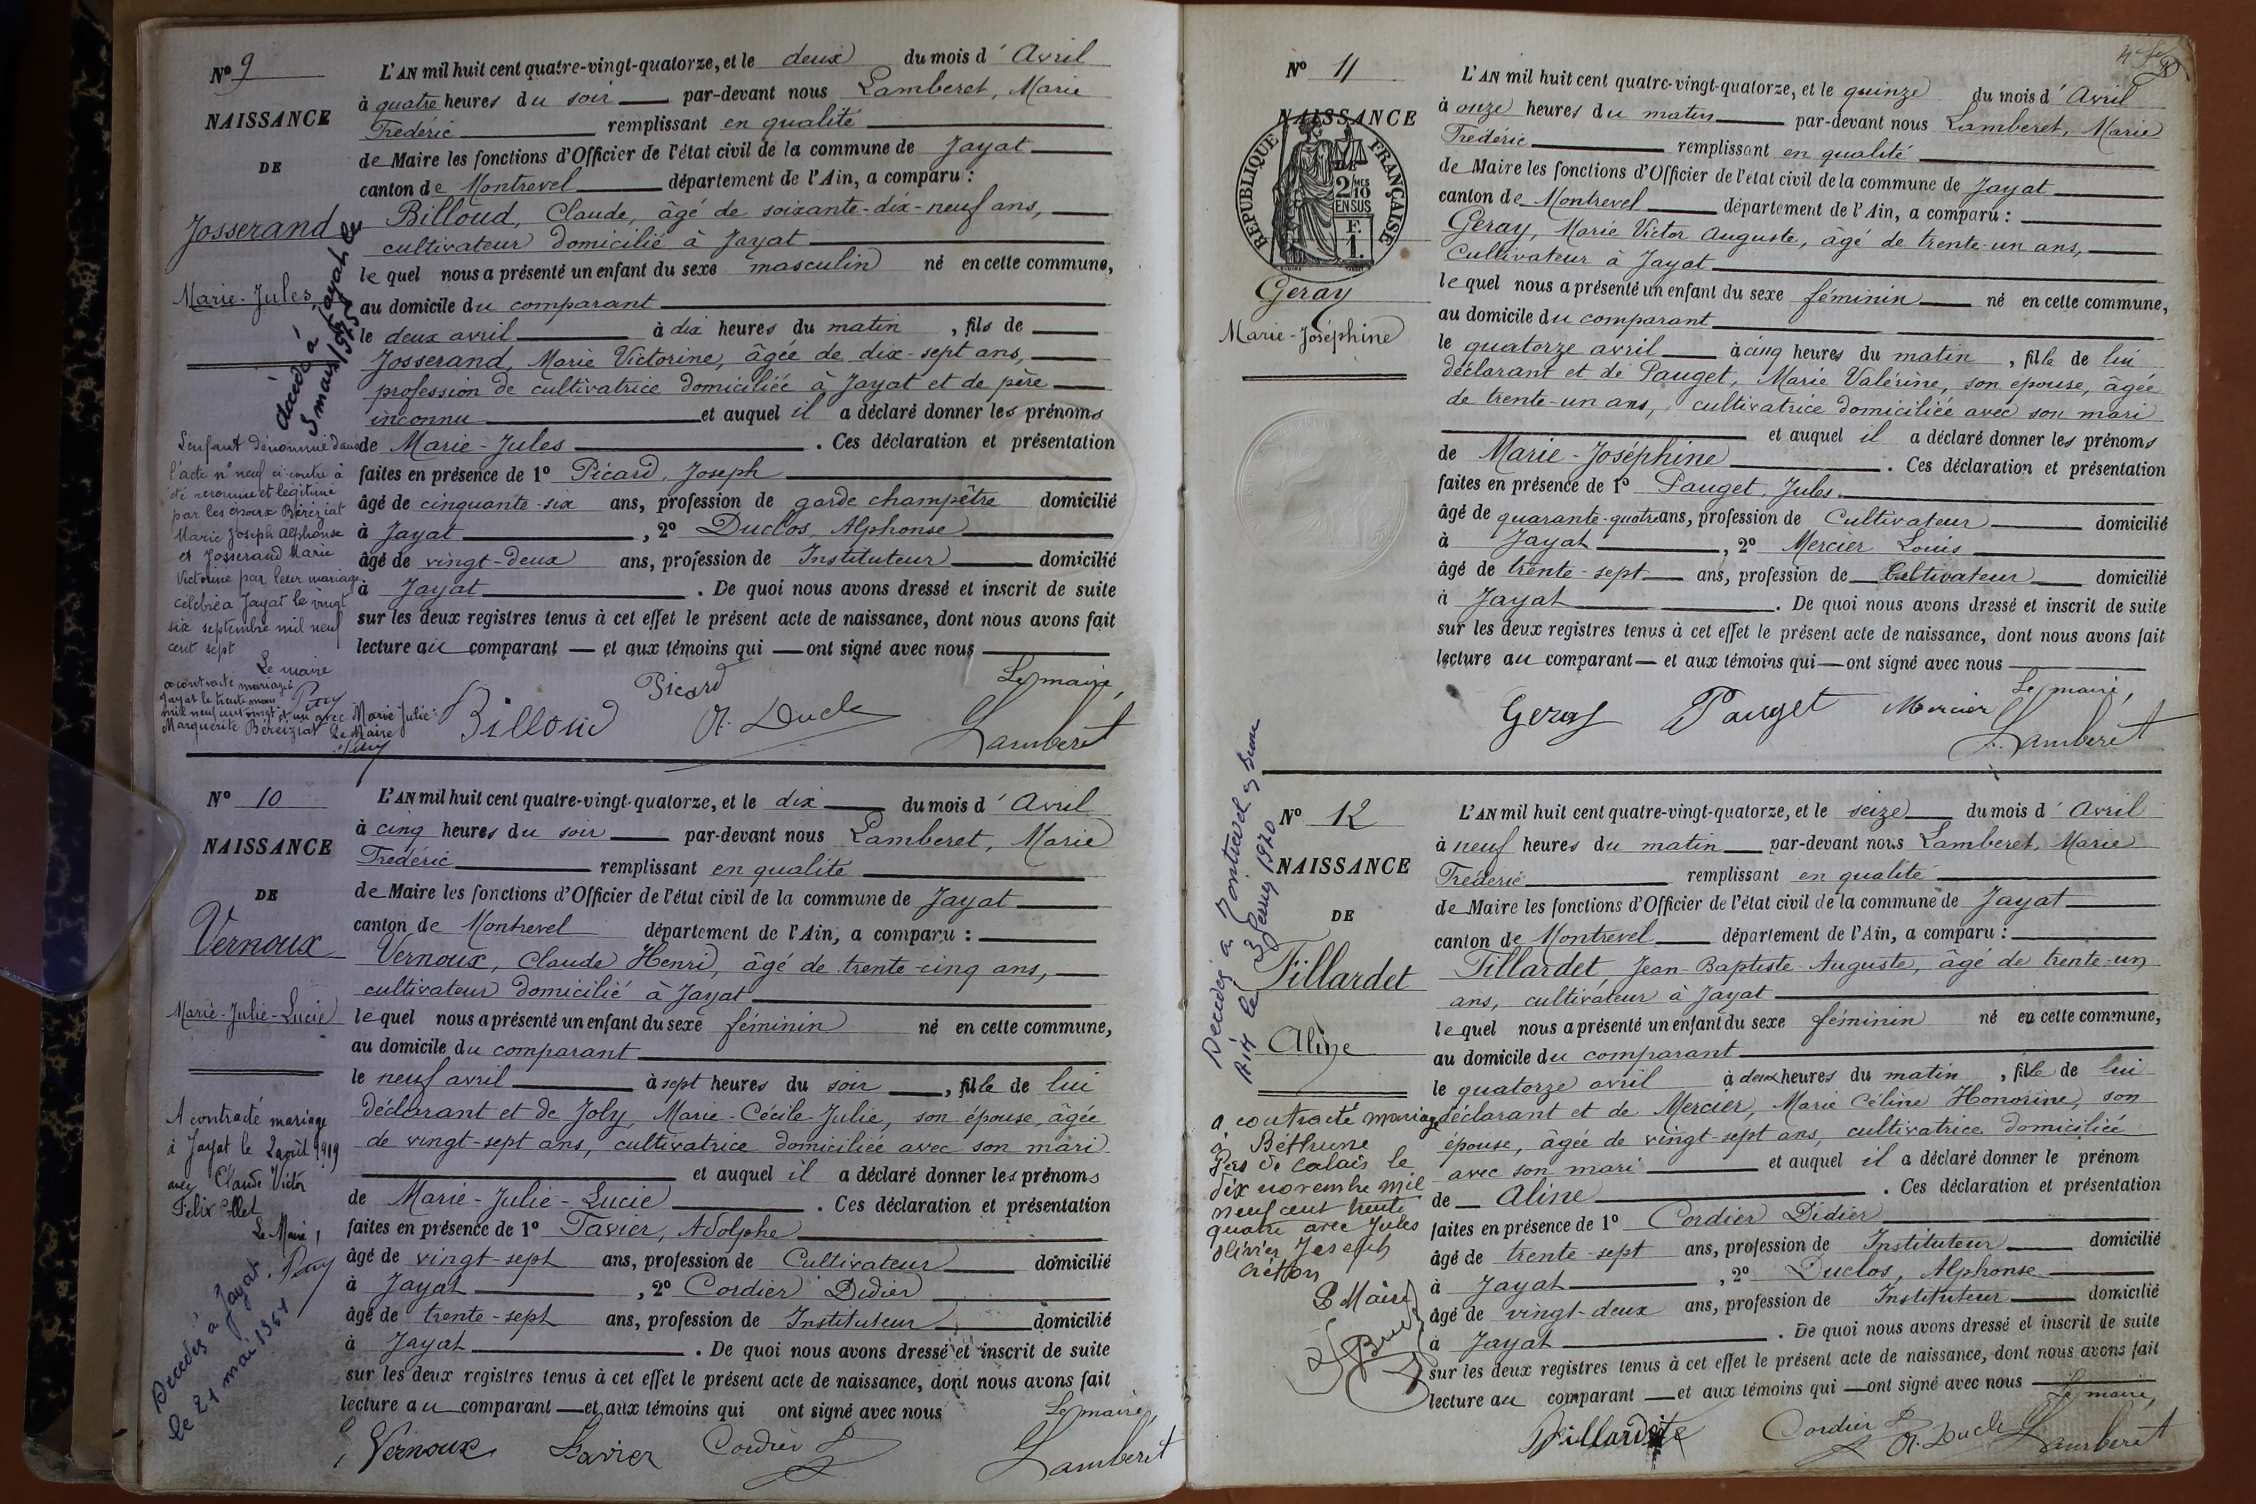 Nº 9
NAISSANCE
DE
Josserand
Marie-Jules
décédé à Jayat le
5 mars 1975
L'enfant dénommé dans
l'acte nº neuf ci-contre à
été reconnu et légitimé
par les époux Béréziat
Marie Joseph Alphonse
et Josserand Marie
Victorine par leur mariage
célébré à Jayat le vingt
six septembre mil neuf
cent sept
Le maire
a contracté mariage
Jayat le trente mars
mil neuf cent vingt et un avec Marie Julie
Marguerite Béréziat Le Maire
L'AN mil huit cent quatre-vingt-quatorze, et le deux du mois d'Avril
à quatre heures du soir par-devant nous Lamberet, Marie
Frédéric remplissant en qualité
de Maire les fonctions d'Officier de l'état civil de la commune de Jayat
canton de Montrevel département de l'Ain, a comparu :
Billoud, Claude, âgé de soixante-dix-neuf ans,
cultivateur domicilié à Jayat
lequel nous a présenté un enfant du sexe masculin né en cette commune,
au domicile du comparant
le deux avril à dix heures du matin, fils de
Josserand, Marie Victorine, âgée de dix-sept ans,
profession de cultivatrice domiciliée à Jayat et de père
inconnu et auquel il a déclaré donner les prénoms
de Marie-Jules. Ces déclaration et présentation
faites en présence de 1º Picard, Joseph
âgé de cinquante-six ans, profession de garde champêtre domicilié
à Jayat, 2º Duclos, Alphonse
âgé de vingt-deux ans, profession de Instituteur domicilié
à Jayat. De quoi nous avons dressé et inscrit de suite
sur les deux registres tenus à cet effet le présent acte de naissance, dont nous avons fait
lecture au comparant et aux témoins qui ont signé avec nous
Le maire,
Billoud Picard A. Duclos Lamberet
Nº 10
NAISSANCE
DE
Vernoux
Marie-Julie-Lucie
A contracté mariage
à Jayat le 2 août 1919
avec Claude Victor
Félix
Le Maire,
Décédée à Jayat
le 21 mai 1964
L'AN mil huit cent quatre-vingt-quatorze, et le dix du mois d'Avril
à cinq heures du soir par-devant nous Lamberet, Marie
Frédéric remplissant en qualité
de Maire les fonctions d'Officier de l'état civil de la commune de Jayat
canton de Montrevel département de l'Ain, a comparu :
Vernoux, Claude Henri, âgé de trente-cinq ans,
cultivateur domicilié à Jayat
lequel nous a présenté un enfant du sexe féminin né en cette commune,
au domicile du comparant
le neuf avril à sept heures du soir, fille de lui
déclarant et de Joly, Marie-Cécile-Julie, son épouse, âgée
de vingt-sept ans, cultivatrice domiciliée avec son mari
et auquel il a déclaré donner les prénoms
de Marie-Julie-Lucie. Ces déclaration et présentation
faites en présence de 1º Favier, Adolphe
âgé de vingt-sept ans, profession de Cultivateur domicilié
à Jayat, 2º Cordier Didier
âgé de trente-sept ans, profession de Instituteur domicilié
à Jayat. De quoi nous avons dressé et inscrit de suite
sur les deux registres tenus à cet effet le présent acte de naissance, dont nous avons fait
lecture au comparant et aux témoins qui ont signé avec nous
Le maire,
Vernoux Favier Cordier D Lamberet
Nº 11
NAISSANCE
RÉPUBLIQUE FRANÇAISE
2/10 MES
EN SUS
F.
1.
Geray
Marie-Joséphine
L'AN mil huit cent quatre-vingt-quatorze, et le quinze du mois d'Avril
à onze heures du matin par-devant nous Lamberet, Marie
Frédéric remplissant en qualité
de Maire les fonctions d'Officier de l'état civil de la commune de Jayat
canton de Montrevel département de l'Ain, a comparu :
Geray, Marie Victor Auguste, âgé de trente-un ans,
Cultivateur à Jayat
lequel nous a présenté un enfant du sexe féminin né en cette commune,
au domicile du comparant
le quatorze avril à cinq heures du matin, fille de lui
déclarant et de Pauget, Marie Valérine, son épouse, âgée
de trente-un ans, cultivatrice domiciliée avec son mari
et auquel il a déclaré donner les prénoms
de Marie-Joséphine. Ces déclaration et présentation
faites en présence de 1º Pauget, Jules
âgé de quarante-quatre ans, profession de Cultivateur domicilié
à Jayat, 2º Mercier Louis
âgé de trente-sept ans, profession de Cultivateur domicilié
à Jayat. De quoi nous avons dressé et inscrit de suite
sur les deux registres tenus à cet effet le présent acte de naissance, dont nous avons fait
lecture au comparant et aux témoins qui ont signé avec nous
Le maire,
Geray Pauget Mercier Lamberet
Nº 12
NAISSANCE
DE
Tillardet
Aline
1970
a contracté mariage
à Béthune
Pas de Calais le
dix novembre mil
neuf cent trente
quatre avec Jules
Olivier Joseph
Créton
Le Maire
L'AN mil huit cent quatre-vingt-quatorze, et le seize du mois d'Avril
à neuf heures du matin par-devant nous Lamberet, Marie
Frédéric remplissant en qualité
de Maire les fonctions d'Officier de l'état civil de la commune de Jayat
canton de Montrevel département de l'Ain, a comparu :
Tillardet, Jean-Baptiste Auguste, âgé de trente-un
ans, cultivateur à Jayat
lequel nous a présenté un enfant du sexe féminin né en cette commune,
au domicile du comparant
le quatorze avril à deux heures du matin, fille de lui
déclarant et de Mercier, Marie Céline Honorine, son
épouse, âgée de vingt-sept ans, cultivatrice domiciliée
avec son mari et auquel il a déclaré donner le prénom
de Aline. Ces déclaration et présentation
faites en présence de 1º Cordier Didier
âgé de trente-sept ans, profession de Instituteur domicilié
à Jayat, 2º Duclos, Alphonse
âgé de vingt-deux ans, profession de Instituteur domicilié
à Jayat. De quoi nous avons dressé et inscrit de suite
sur les deux registres tenus à cet effet le présent acte de naissance, dont nous avons fait
lecture au comparant et aux témoins qui ont signé avec nous
Le maire,
Tillardet Cordier D A. Duclos Lamberet